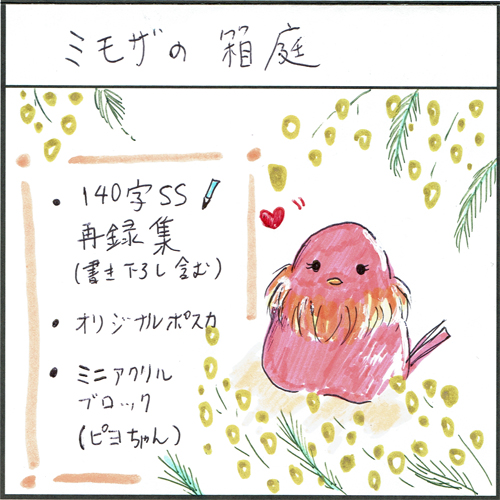 ミモザの 箱庭
・140字SS
再録集
(書き下ろし含む)
・オリジナルポスカ
・ミニアクリル
ブロック
(ピヨちゃん)